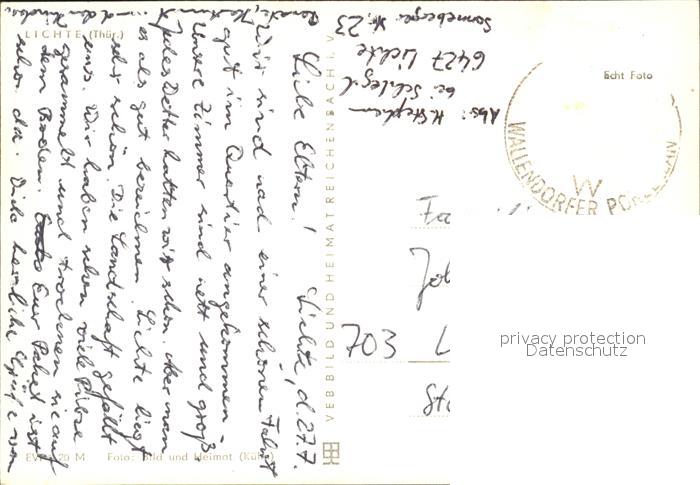 LICHTE (Thür.)
Lichte, d. 27.7.
Liebe Eltern!
Wir sind nach einer schönen Fahrt
gut im Quartier angekommen.
Unsere Zimmer sind nett und groß.
Jedes Wetter hatten wir schon. Aber man
es als gut bezeichnen. Lichte liegt
sehr schön. Die Landschaft gefällt
uns. Wir haben schon viele Pilze
gesammelt und trocknen sie auf
dem Boden. Euer Paket ist
schon da. Viele herzliche Grüße von
und den Kindern
EVP 20 M Foto: Bild und Heimat (Kühn)
VEB BILD UND HEIMAT REICHENBACH i. V.
Abs: H. Stephan
bei Schlegel
6427 Lichte
Sonneberger Str. 23
Echt Foto
W
WALLENDORFER PORZELLAN
703
privacy protection
Datenschutz